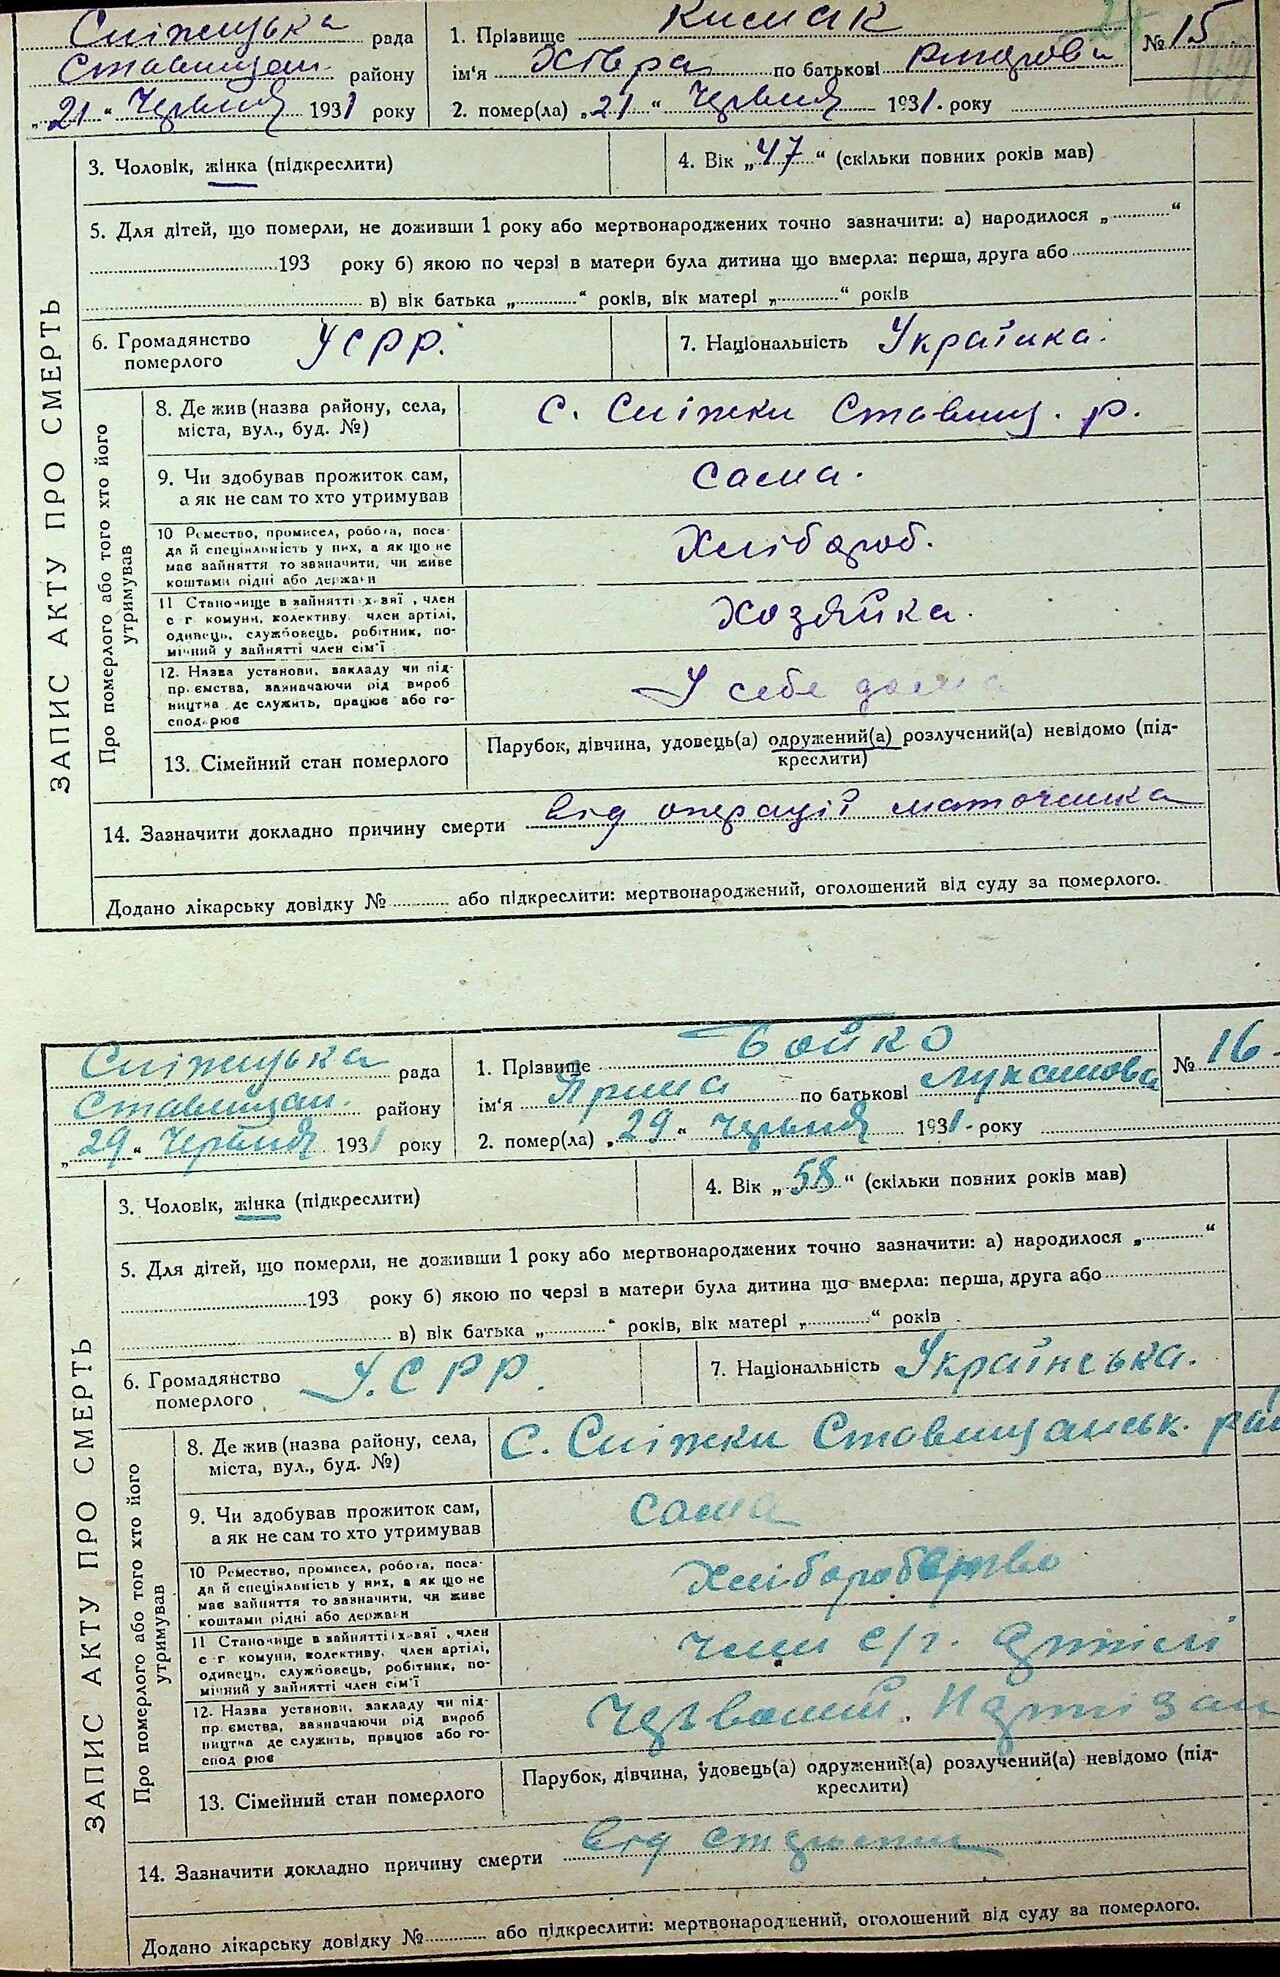 Сніжицька рада
Ставищан. району
„21“ Червня 1931 року
1. Прізвище Кимак № 15
ім'я по батькові
2. помер(ла) „21“ Червня 1931. року
ЗАПИС АКТУ ПРО СМЕРТЬ
3. Чоловік, жінка (підкреслити)
4. Вік „47“ (скільки повних років мав)
5. Для дітей, що померли, не доживши 1 року або мертвонароджених точно зазначити: а) народилося „ “
193 року б) якою по черзі в матери була дитина що вмерла: перша, друга або
в) вік батька „ “ років, вік матері „ “ років
6. Громадянство
померлого
УСРР.
7. Національність Українка.
Про померлого або того хто його
утримував
8. Де жив (назва району, села,
міста, вул., буд. №)
С. Сніжки Ставищ. р.
9. Чи здобував прожиток сам,
а як не сам то хто утримував
сама.
10 Ремество, промисел, робота, поса-
да й спеціяльність у них, а як що не
має зайняття то зазначити, чи живе
коштами рідні або держави
Хлібороб.
11 Становище в зайнятті х-зяї, член
с г комуни, колективу член артілі,
одинець, службовець, робітник, по-
мічний у зайнятті член сім'ї
Хозяйка.
12. Назва установи, закладу чи під-
приємства, зазначаючи рід вироб
ництва де служить, працює або го-
сподарює
У себе дома
13. Сімейний стан померлого
Парубок, дівчина, удовець(а) одружений(а) розлучений(а) невідомо (під-
креслити)
14. Зазначити докладно причину смерти від операції маточника
Додано лікарську довідку № або підкреслити: мертвонароджений, оголошений від суду за померлого.
Сніжицька рада
Ставищан. району
„29“ Червня 1931 року
1. Прізвище Бойко № 16.
ім'я Ярина по батькові Лукашова
2. помер(ла) „29“ Червня 1931. року
ЗАПИС АКТУ ПРО СМЕРТЬ
3. Чоловік, жінка (підкреслити)
4. Вік „58“ (скільки повних років мав)
5. Для дітей, що померли, не доживши 1 року або мертвонароджених точно зазначити: а) народилося „ “
193 року б) якою по черзі в матери була дитина що вмерла: перша, друга або
в) вік батька „ “ років, вік матері „ “ років
6. Громадянство
померлого
У.СРР.
7. Національність Українська.
Про померлого або того хто його
утримував
8. Де жив (назва району, села,
міста, вул., буд. №)
С. Сніжки Ставищанськ. рай
9. Чи здобував прожиток сам,
а як не сам то хто утримував
сама
10 Ремество, промисел, робота, поса-
да й спеціяльність у них, а як що не
має зайняття то зазначити, чи живе
коштами рідні або держави
Хліборобство
11 Становище в зайнятті х-зяї, член
с г комуни, колективу, член артілі,
одинець, службовець, робітник, по-
мічний у зайнятті член сім'ї
член с/г. артілі
12. Назва установи, закладу чи під-
приємства, зазначаючи рід вироб
ництва де служить, працює або го-
сподарює
Червоний. Партизан
13. Сімейний стан померлого
Парубок, дівчина, удовець(а) одружений(а) розлучений(а) невідомо (під-
креслити)
14. Зазначити докладно причину смерти від старости
Додано лікарську довідку № або підкреслити: мертвонароджений, оголошений від суду за померлого.